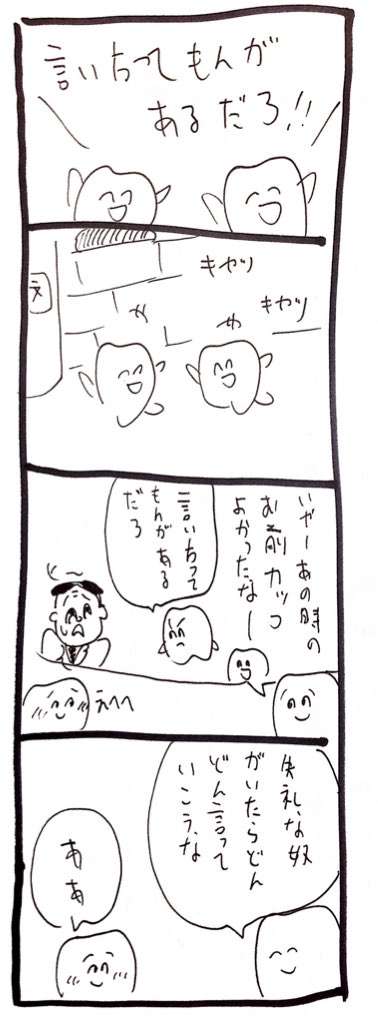 言い方ってもんが
あるだろ!!
キャッ
キャッ
え
いやーあの時の
お前カッコ
よかったなー
言い方って
もんがある
だろ
えへへ
失礼な奴
がいたらどん
どん言って
いこうな
ああ